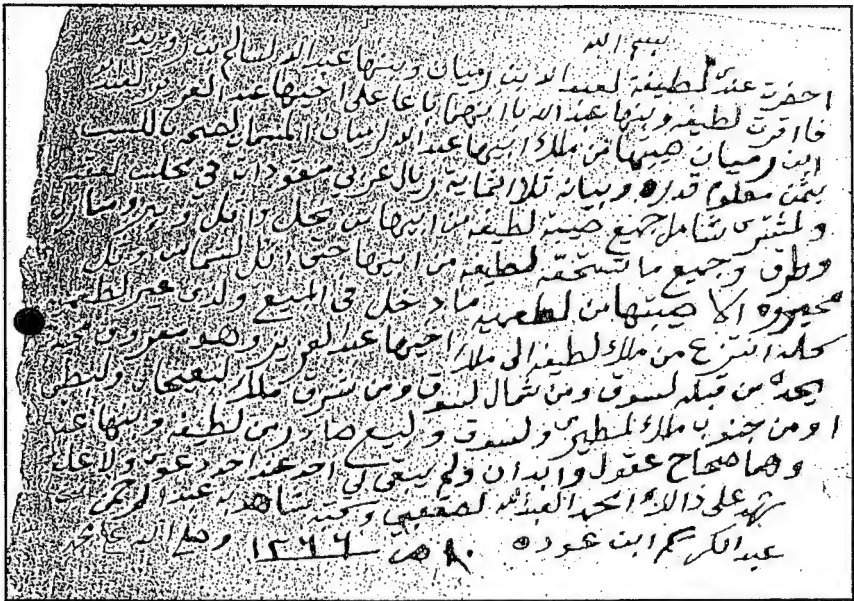 بسم الله
احضرت عندي لطيفة لعبد الله ابن رميان وبنها عبد الله السالم بن رويد
فااقرت لطيفه وبنها عبد الله باانهما باعا على اخيها عبد العزيز لعبد الله
ابن رميان صيبتها من ملك ابيها عبد الله الرميان المسما لصحن للبيت
بثمن معلوم قدره وبيانه ثلاثماية ريال عربي منقودات في مجلس لعقد
ولمشترى شامل جميع صيبة لطيفه من ابيها من نخل واثل وبير ومنازل
وطرق وجميع ما تستحقه لطيفه من ابيها حتى اثل لشماس وثل
الا صيبتها من لطعميه ما دخل في المبيع ولذي غير لطعميه
كله انتزع من ملك لطيفه الى ملك اخيها عبد العزيز وهو معروف محدود
يحده من قبله لسوق ومن شمال لسوق ومن شرق ملك
او من جنوب ملك لمطيري ولسوق ولبيع صادر من لطيفه وبنها عبد
وهما صحاح عقول وابدان ولم يبقى لي احد عند احد دعوى ولا علق
شهد على ذالك محمد العبد الله لصقعبي وكتبه شاهد به عبد الرحمن
عبد الكريم ابن عوده ١٢٦٦ وصلى الله على محمد